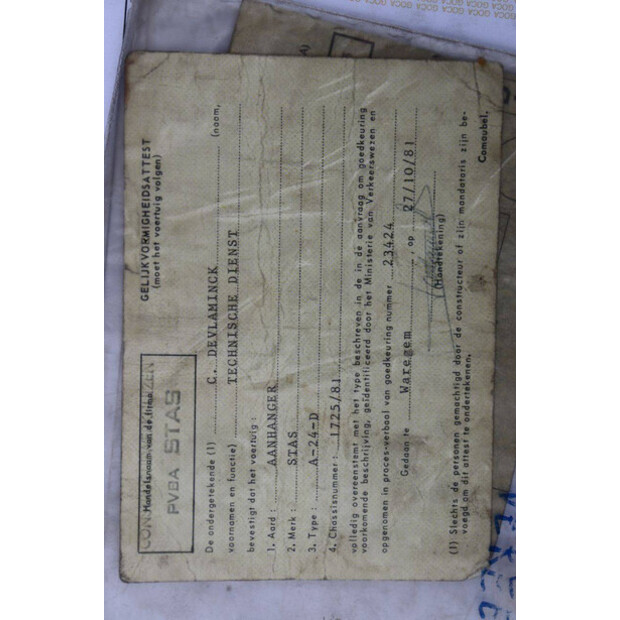 GELIJKVORMIGHEIDSATTEST
(moet het voertuig volgen)
Handelsnaam van de firma
PVBA STAS
De ondergetekende (1) C. DEVLAMINCK (naam,
voornamen en functie) TECHNISCHE DIENST
bevestigt dat het voertuig :
1. Aard : AANHANGER
2. Merk : STAS
3. Type : A-24-D
4. Chassisnummer : 1725/81
volledig overeenstemt met het type beschreven in de in de aanvraag om goedkeuring
voorkomende beschrijving, geïdentificeerd door het Ministerie van Verkeerswezen en
opgenomen in proces-verbaal van goedkeuring nummer 23424
Gedaan te Waregem, op 27/10/81
(Handtekening)
(1) Slechts de personen gemachtigd door de constructeur of zijn mandataris zijn be-
voegd om dit attest te ondertekenen.
Comaubel.
GOCA GOCA GOCA GOCA GOCA